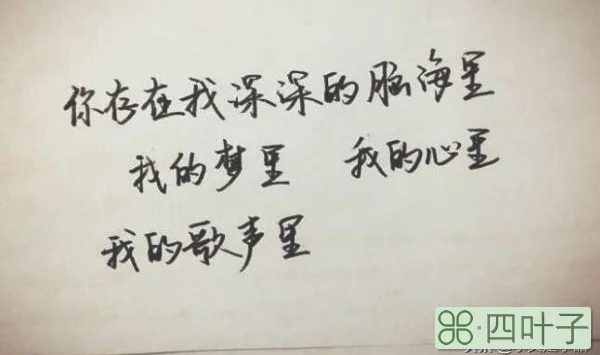 你存在我深深的脑海里
我的梦里 我的心里
我的歌声里
四叶子